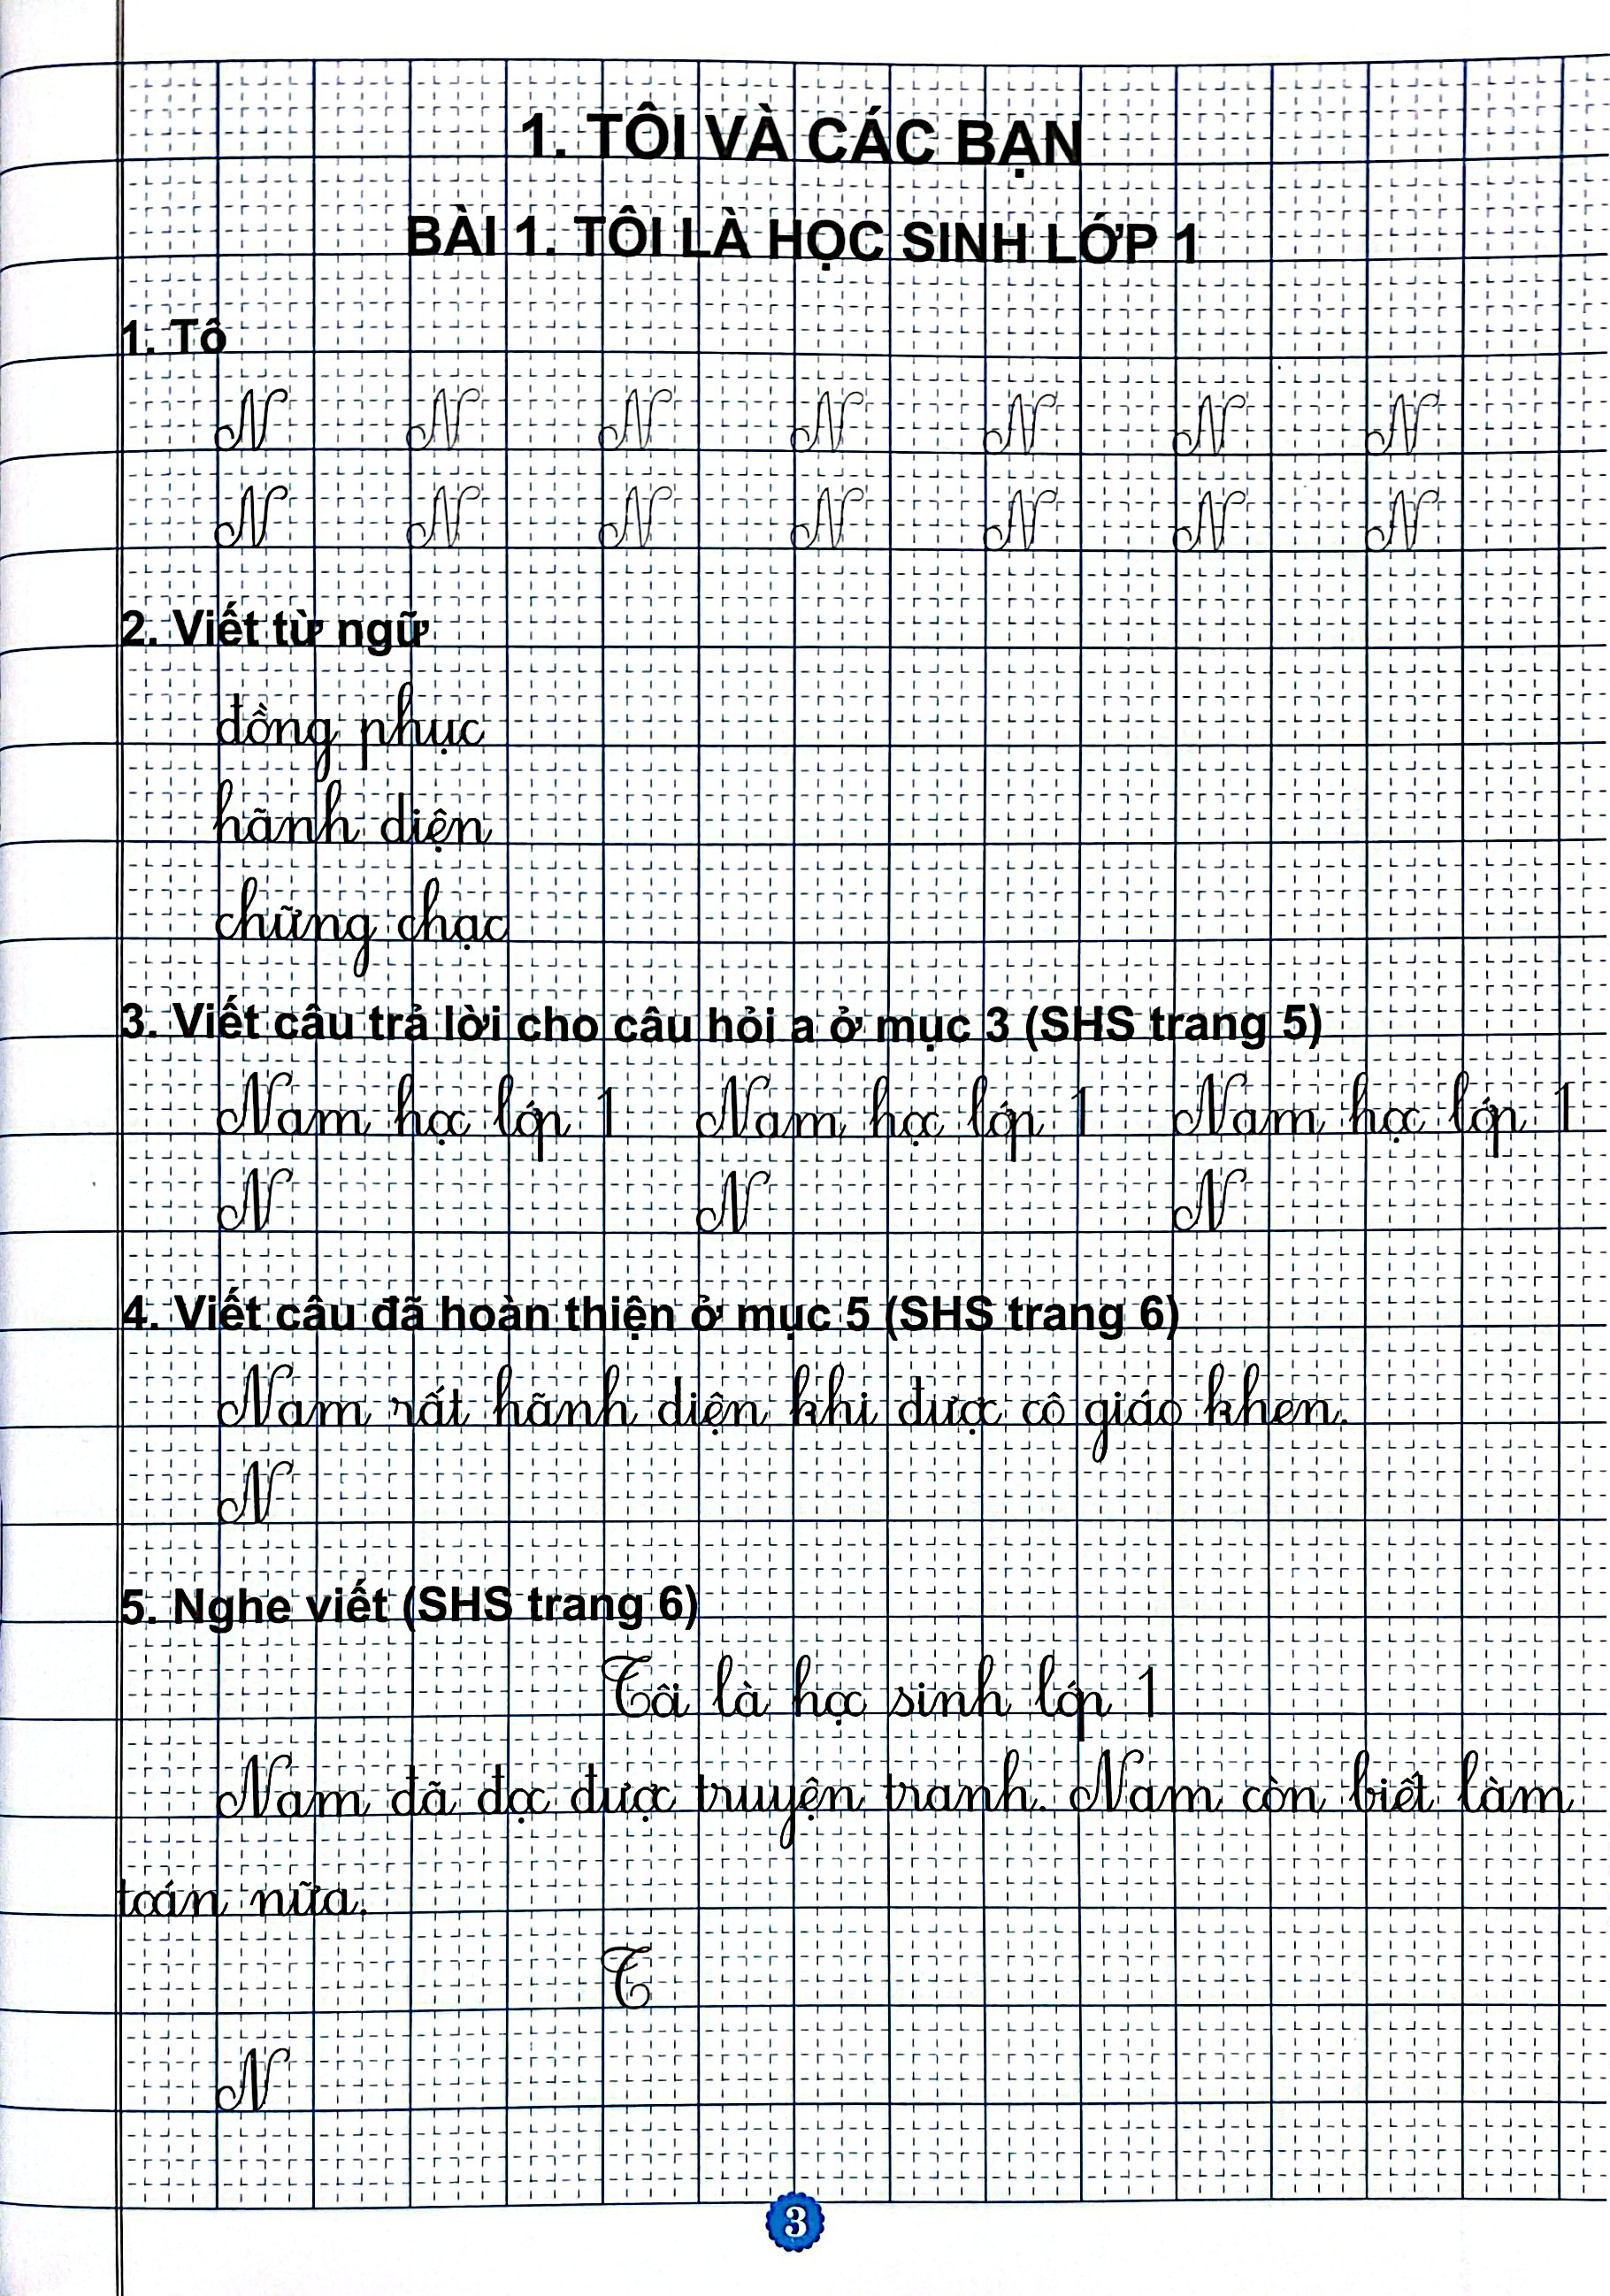 1. TÔI VÀ CÁC BẠN
BÀI 1. TÔI LÀ HỌC SINH LỚP 1
1. Tô
N N N N N N N
N N N N N N N
2. Viết từ ngữ
đồng phục
hãnh diện
chững chạc
3. Viết câu trả lời cho câu hỏi a ở mục 3 (SHS trang 5)
Nam học lớp 1 Nam học lớp 1 Nam học lớp 1
N N N
4. Viết câu đã hoàn thiện ở mục 5 (SHS trang 6)
Nam rất hãnh diện khi được cô giáo khen.
N
5. Nghe viết (SHS trang 6)
Tôi là học sinh lớp 1
Nam đã đọc được truyện tranh. Nam còn biết làm
toán nữa.
T
N
3